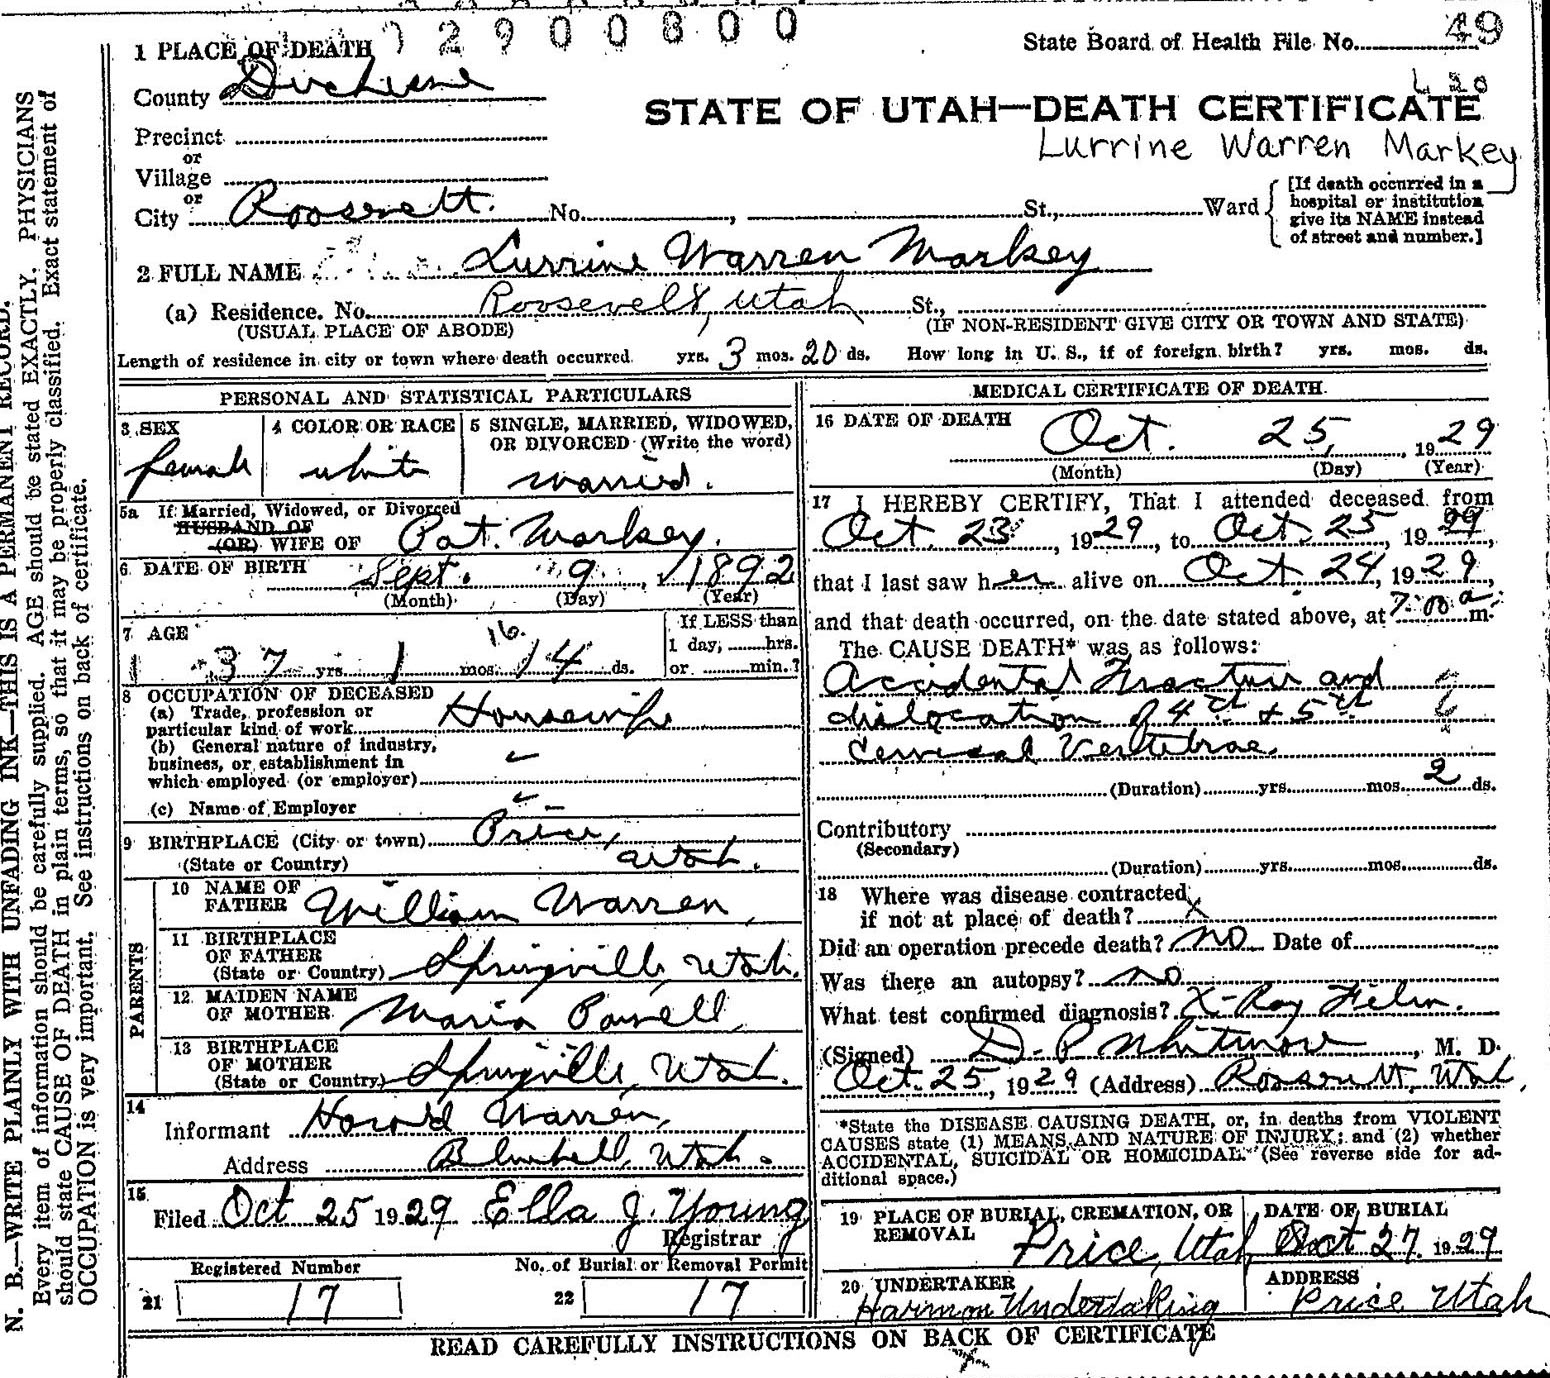 2900800
1 PLACE OF DEATH
State Board of Health File No. 49
County Duchesne
STATE OF UTAH—DEATH CERTIFICATE
Lurrine Warren Markey
Precinct
or
Village
or
City Roosevelt. No. , St., Ward
[If death occurred in a hospital or institution give its NAME instead of street and number.]
2 FULL NAME Lurrine Warren Markey
(a) Residence. No. Roosevelt, Utah St.,
(USUAL PLACE OF ABODE) (IF NON-RESIDENT GIVE CITY OR TOWN AND STATE)
Length of residence in city or town where death occurred yrs. 3 mos. 20 ds. How long in U. S., if of foreign birth? yrs. mos. ds.
PERSONAL AND STATISTICAL PARTICULARS
3 SEX
female
4 COLOR OR RACE
white
5 SINGLE, MARRIED, WIDOWED,
OR DIVORCED (Write the word)
married.
5a If Married, Widowed, or Divorced
HUSBAND OF
(OR) WIFE OF Pat. Markey.
6 DATE OF BIRTH Sept. 9, 1892
(Month) (Day) (Year)
7 AGE
37 yrs. 1 mos. 16. 14 ds.
If LESS than
1 day, hrs.
or min.?
8 OCCUPATION OF DECEASED
(a) Trade, profession or
particular kind of work Housewife
(b) General nature of industry,
business, or establishment in
which employed (or employer)
(c) Name of Employer
9 BIRTHPLACE (City or town) Price,
(State or Country) Utah.
PARENTS
10 NAME OF
FATHER William Warren,
11 BIRTHPLACE
OF FATHER
(State or Country) Springville, Utah.
12 MAIDEN NAME
OF MOTHER Maria Powell
13 BIRTHPLACE
OF MOTHER
(State or Country) Springville, Utah.
14
Informant Harold Warren,
Address Bluebell, Utah.
15
Filed Oct 25 1929 Ella J. Young
Registrar
Registered Number
21 17
No. of Burial or Removal Permit
22 17
MEDICAL CERTIFICATE OF DEATH.
16 DATE OF DEATH Oct. 25, 1929
(Month) (Day) (Year)
17 I HEREBY CERTIFY, That I attended deceased from
Oct. 23, 1929, to Oct. 25, 1929,
that I last saw her alive on Oct 24, 1929,
and that death occurred, on the date stated above, at 7:00 a m.
The CAUSE DEATH* was as follows:
Accidental Fracture and
dislocation of 4th + 5th
cervical vertebrae.
(Duration) yrs. mos. 2 ds.
Contributory
(Secondary)
(Duration) yrs. mos. ds.
18 Where was disease contracted
if not at place of death? X
Did an operation precede death? no Date of
Was there an autopsy? no
What test confirmed diagnosis? X-Ray Film.
(Signed) D. P Whitmore, M. D.
Oct. 25, 1929 (Address) Roosevelt, Utah,
*State the DISEASE CAUSING DEATH, or, in deaths from VIOLENT
CAUSES state (1) MEANS AND NATURE OF INJURY; and (2) whether
ACCIDENTAL, SUICIDAL OR HOMICIDAL. (See reverse side for ad-
ditional space.)
19 PLACE OF BURIAL, CREMATION, OR
REMOVAL Price, Utah
DATE OF BURIAL
Oct 27. 1929
20 UNDERTAKER
Harmon Undertaking
ADDRESS
Price Utah
READ CAREFULLY INSTRUCTIONS ON BACK OF CERTIFICATE
N. B.—WRITE PLAINLY WITH UNFADING INK—THIS IS A PERMANENT RECORD.
Every item of information should be carefully supplied. AGE should be stated EXACTLY. PHYSICIANS
should state CAUSE OF DEATH in plain terms, so that it may be properly classified. Exact statement of
OCCUPATION is very important. See instructions on back of certificate.